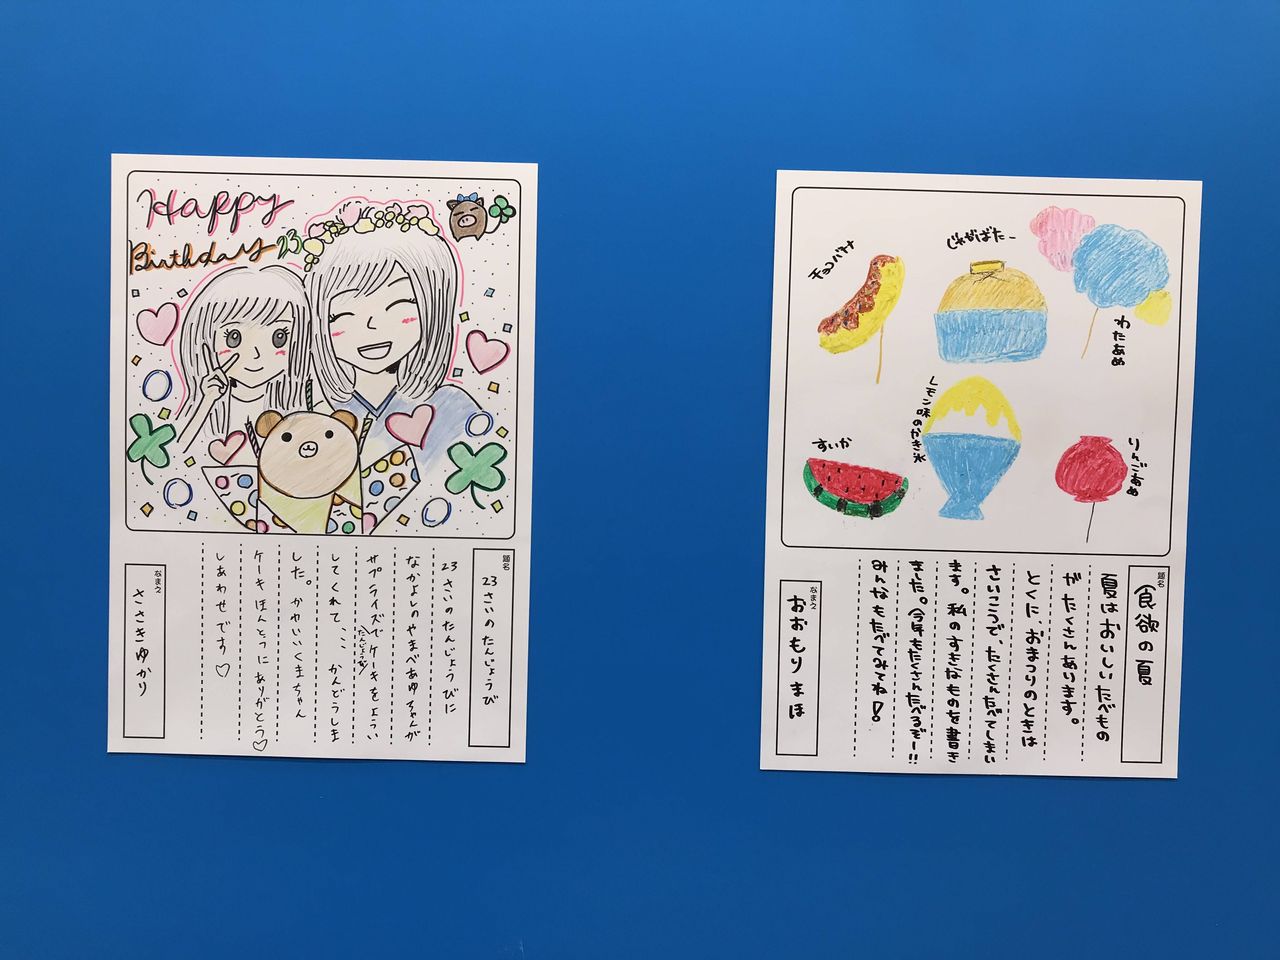 Happy
Birthday 23
題名
23さいのたんじょうび
23さいのたんじょうびに
なかよしのやまべあゆちゃんが
サプライズでたんじょうびケーキをようい
してくれて、、、かんどうしま
した。かわいいくまちゃん
ケーキほんとっにありがとう♡
しあわせです♡
なまえ
ささきゆかり
チョコバナナ
じゃがばたー
わたあめ
レモン味のかき氷
すいか
りんごあめ
題名
食欲の夏
夏はおいしいたべもの
がたくさんあります。
とくに、おまつりのときは
さいっこうで、たくさんたべてしまい
ます。私のすきなものを書き
ました。今年もたくさんたべるぞー!!
みんなもたべてみてね!
なまえ
おおもりまほ